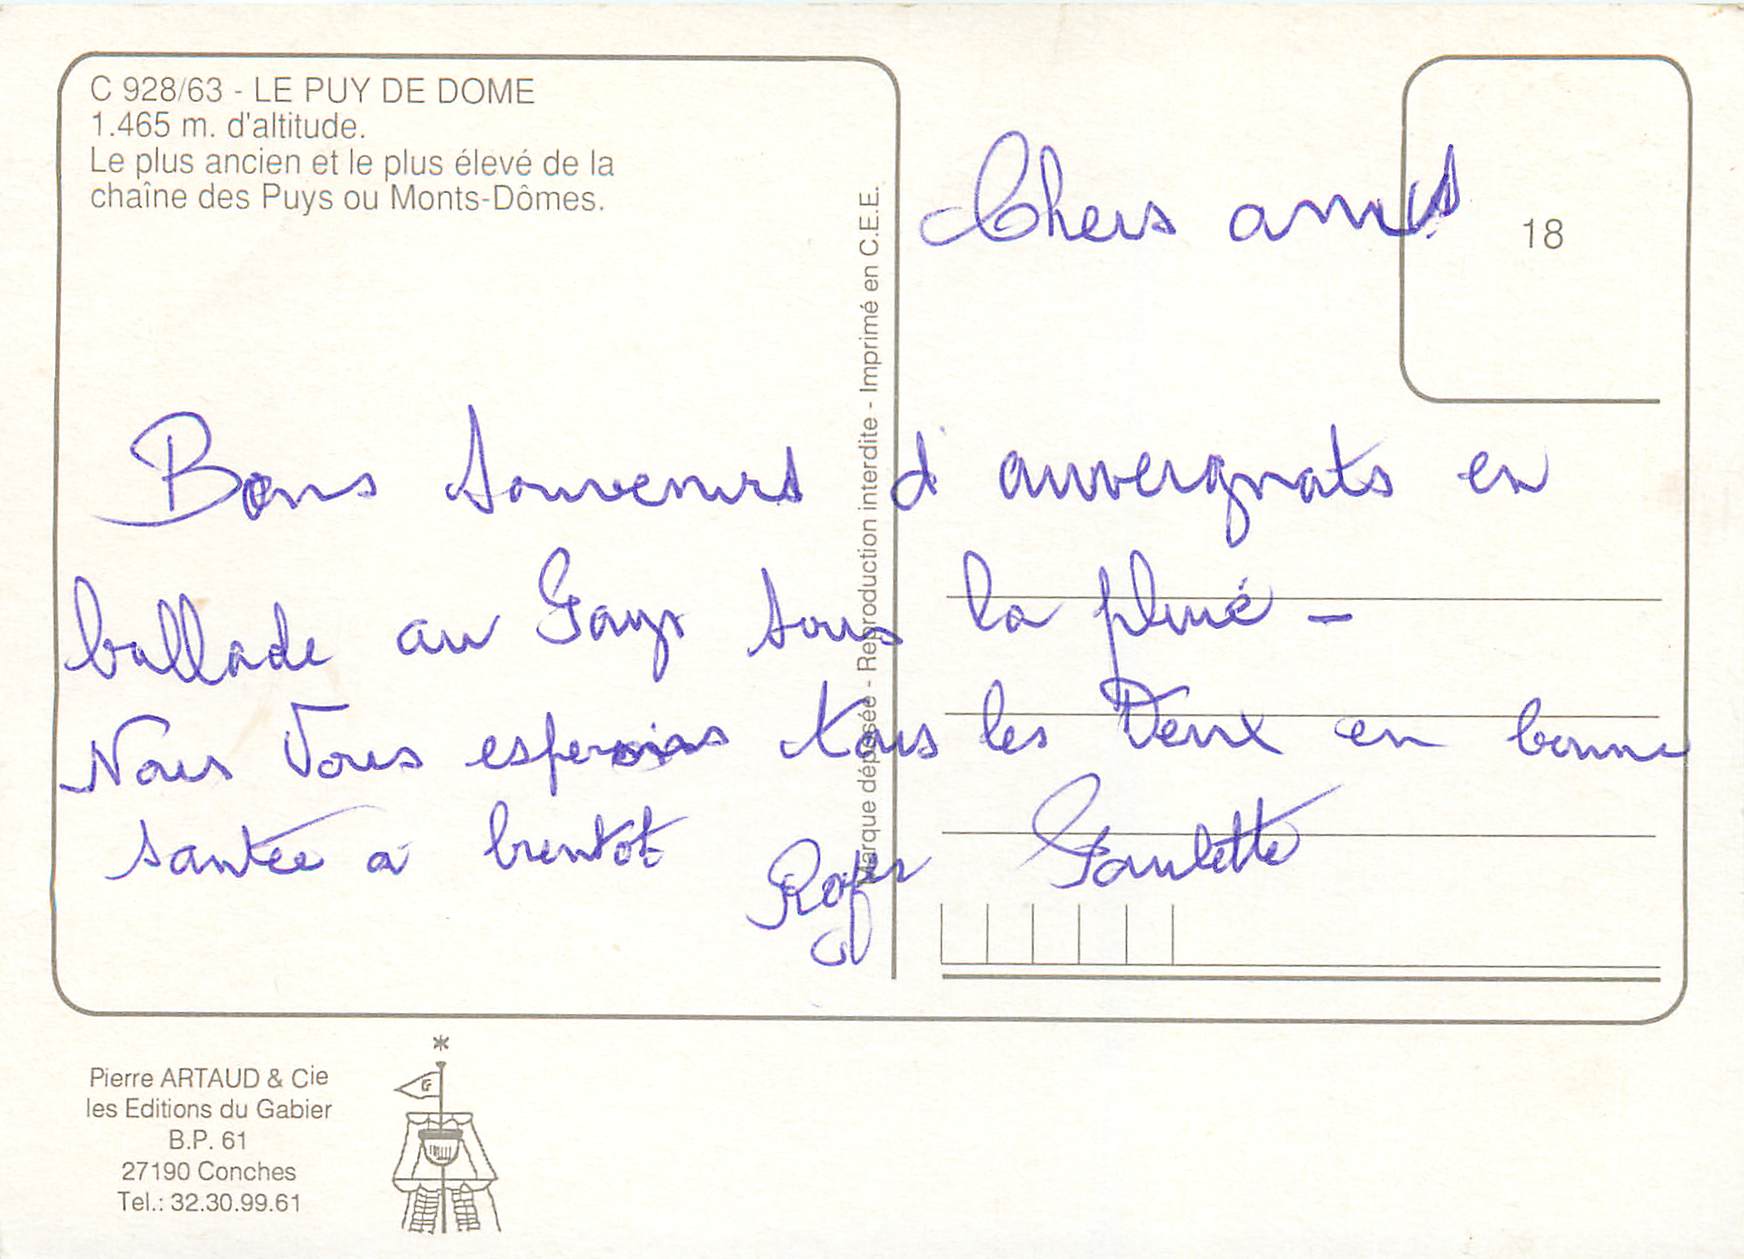 C 928/63 - LE PUY DE DOME
1.465 m. d'altitude.
Le plus ancien et le plus élevé de la
chaîne des Puys ou Monts-Dômes.
Marque déposée - Reproduction interdite - Imprimé en C.E.E.
18
Chers amis
Bons souvenirs d'auvergnats en
ballade au Pays sous la pluie -
Nous Vous esperons tous les Deux en bonne
santée a bientot
Roger Paulette
Pierre ARTAUD & Cie
les Editions du Gabier
B.P. 61
27190 Conches
Tel.: 32.30.99.61